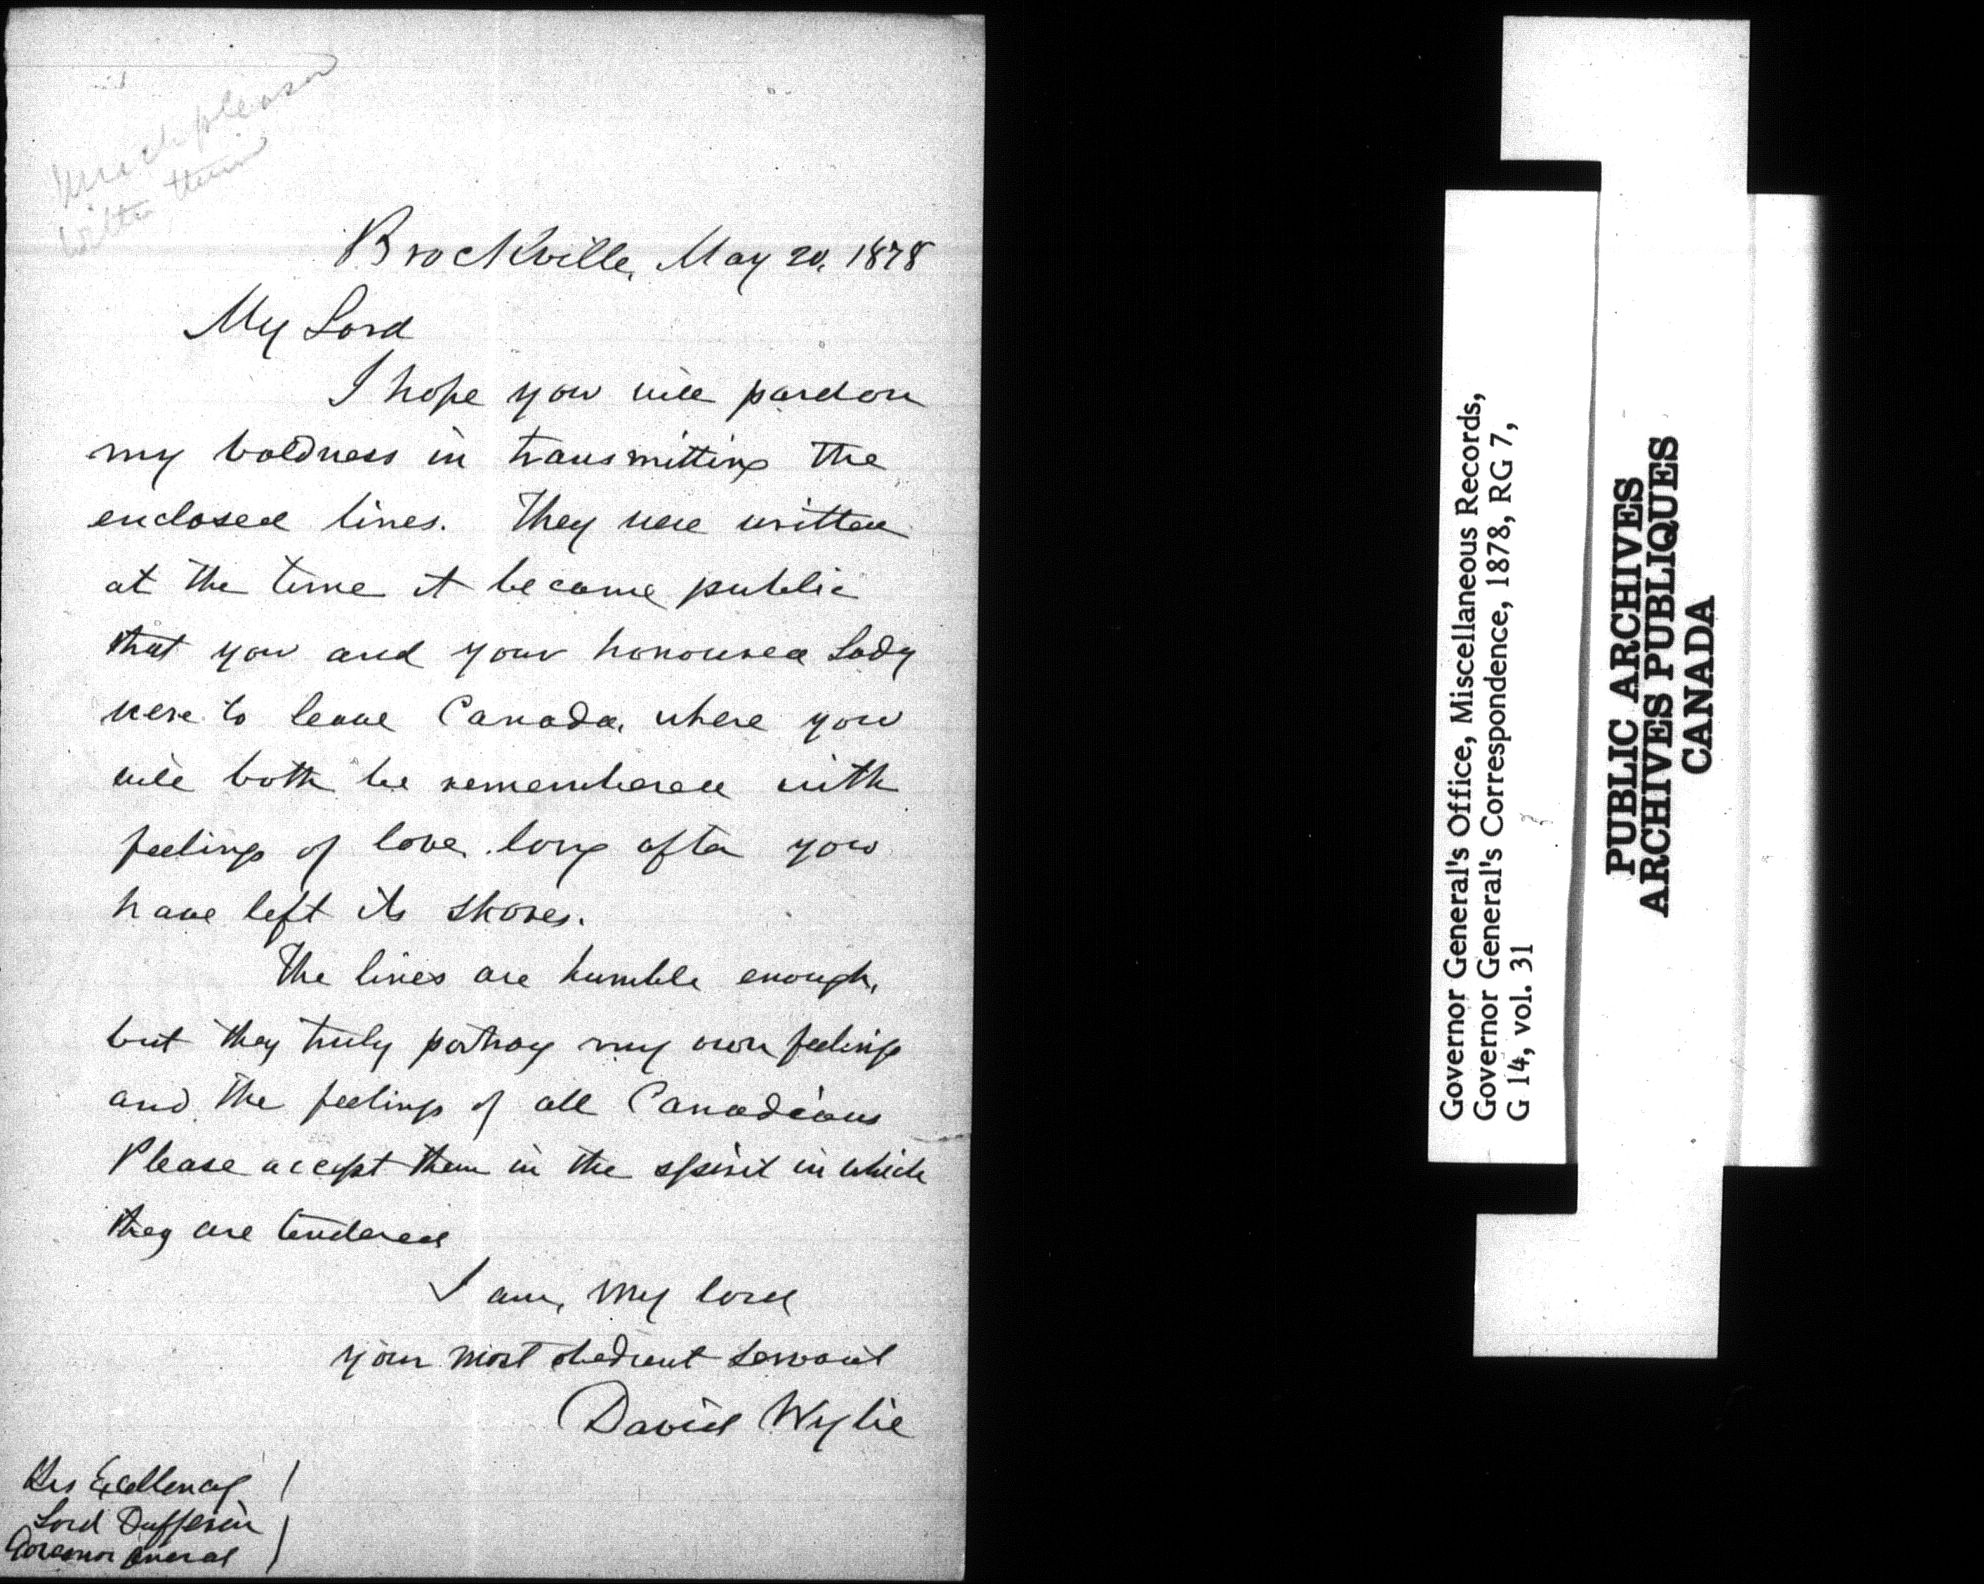 Much pleased
with them
Brockville, May 20, 1878
My Lord
I hope you will pardon
my boldness in transmitting the
enclosed lines. They were written
at the time it became public
that you and your honoured Lady
were to leave Canada, where you
will both be remembered with
feelings of love, long after you
have left its shores.
The lines are humble enough,
but they truly portray my own feelings
and the feelings of all Canadians
Please accept them in the spirit in which
they are tendered
I am, My Lord
your most obedient servant
David Wylie
His Excellency
Lord Dufferin
Governor General
Governor General's Office, Miscellaneous Records,
Governor General's Correspondence, 1878, RG 7,
G 14, vol. 31
PUBLIC ARCHIVES
ARCHIVES PUBLIQUES
CANADA